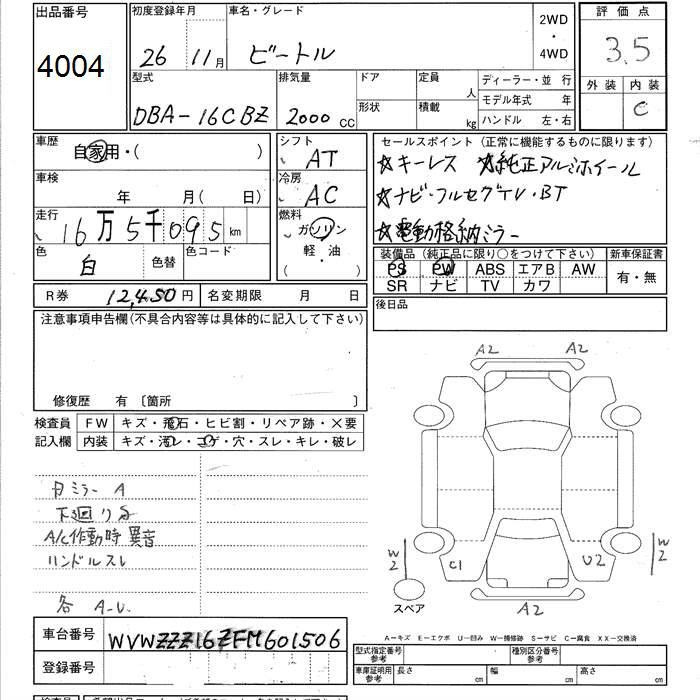 出品番号 初度登録年月 車名・グレード 2WD・4WD 評価点
4004 26 11月 ビートル 3.5
型式 排気量 ドア 定員 人 ディーラー・並 行 外装 内装
DBA-16CBZ 2000 CC 形状 積載 kg モデル年式 年 C
ハンドル 左・右
車歴 自家用・( ) シフト AT セールスポイント (正常に機能するものに限ります)
車検 年 月( 日) 冷房 AC ☆キーレス ☆純正アルミホイール
☆ナビ・フルセグTV・BT
走行 16万5千095km 燃料 ガソリン 軽・油 ( ・ ) ☆電動格納ミラー
色 白 色替 色コード 装備品 (純正品に限り○をつけて下さい) 新車保証書
PS PW ABS エアB AW 有・無
SR ナビ TV カワ
R券 12,450円 名変期限 月 日 後日品
注意事項申告欄(不具合内容等は具体的に記入して下さい)
修復歴 有 〔箇所 〕
検査員 FW キズ・飛石・ヒビ割・リペア跡・×要
記入欄 内装 キズ・汚レ・コゲ・穴・スレ・キレ・破レ
A2 A2
ミラー A
下廻り
A/C作動時 異音
ハンドルスレ
W2 C1 U2 W2
各 A-U.
スペア A2
車台番号 WVWZZZ16ZFM601506
A−キズ E−エクボ U−凹み W−補修跡 S−サビ C−腐食 XX−交換済
登録番号 型式指定番号 参考 種別区分番号 参考
車庫証明用 参考 長さ cm 幅 cm 高さ cm